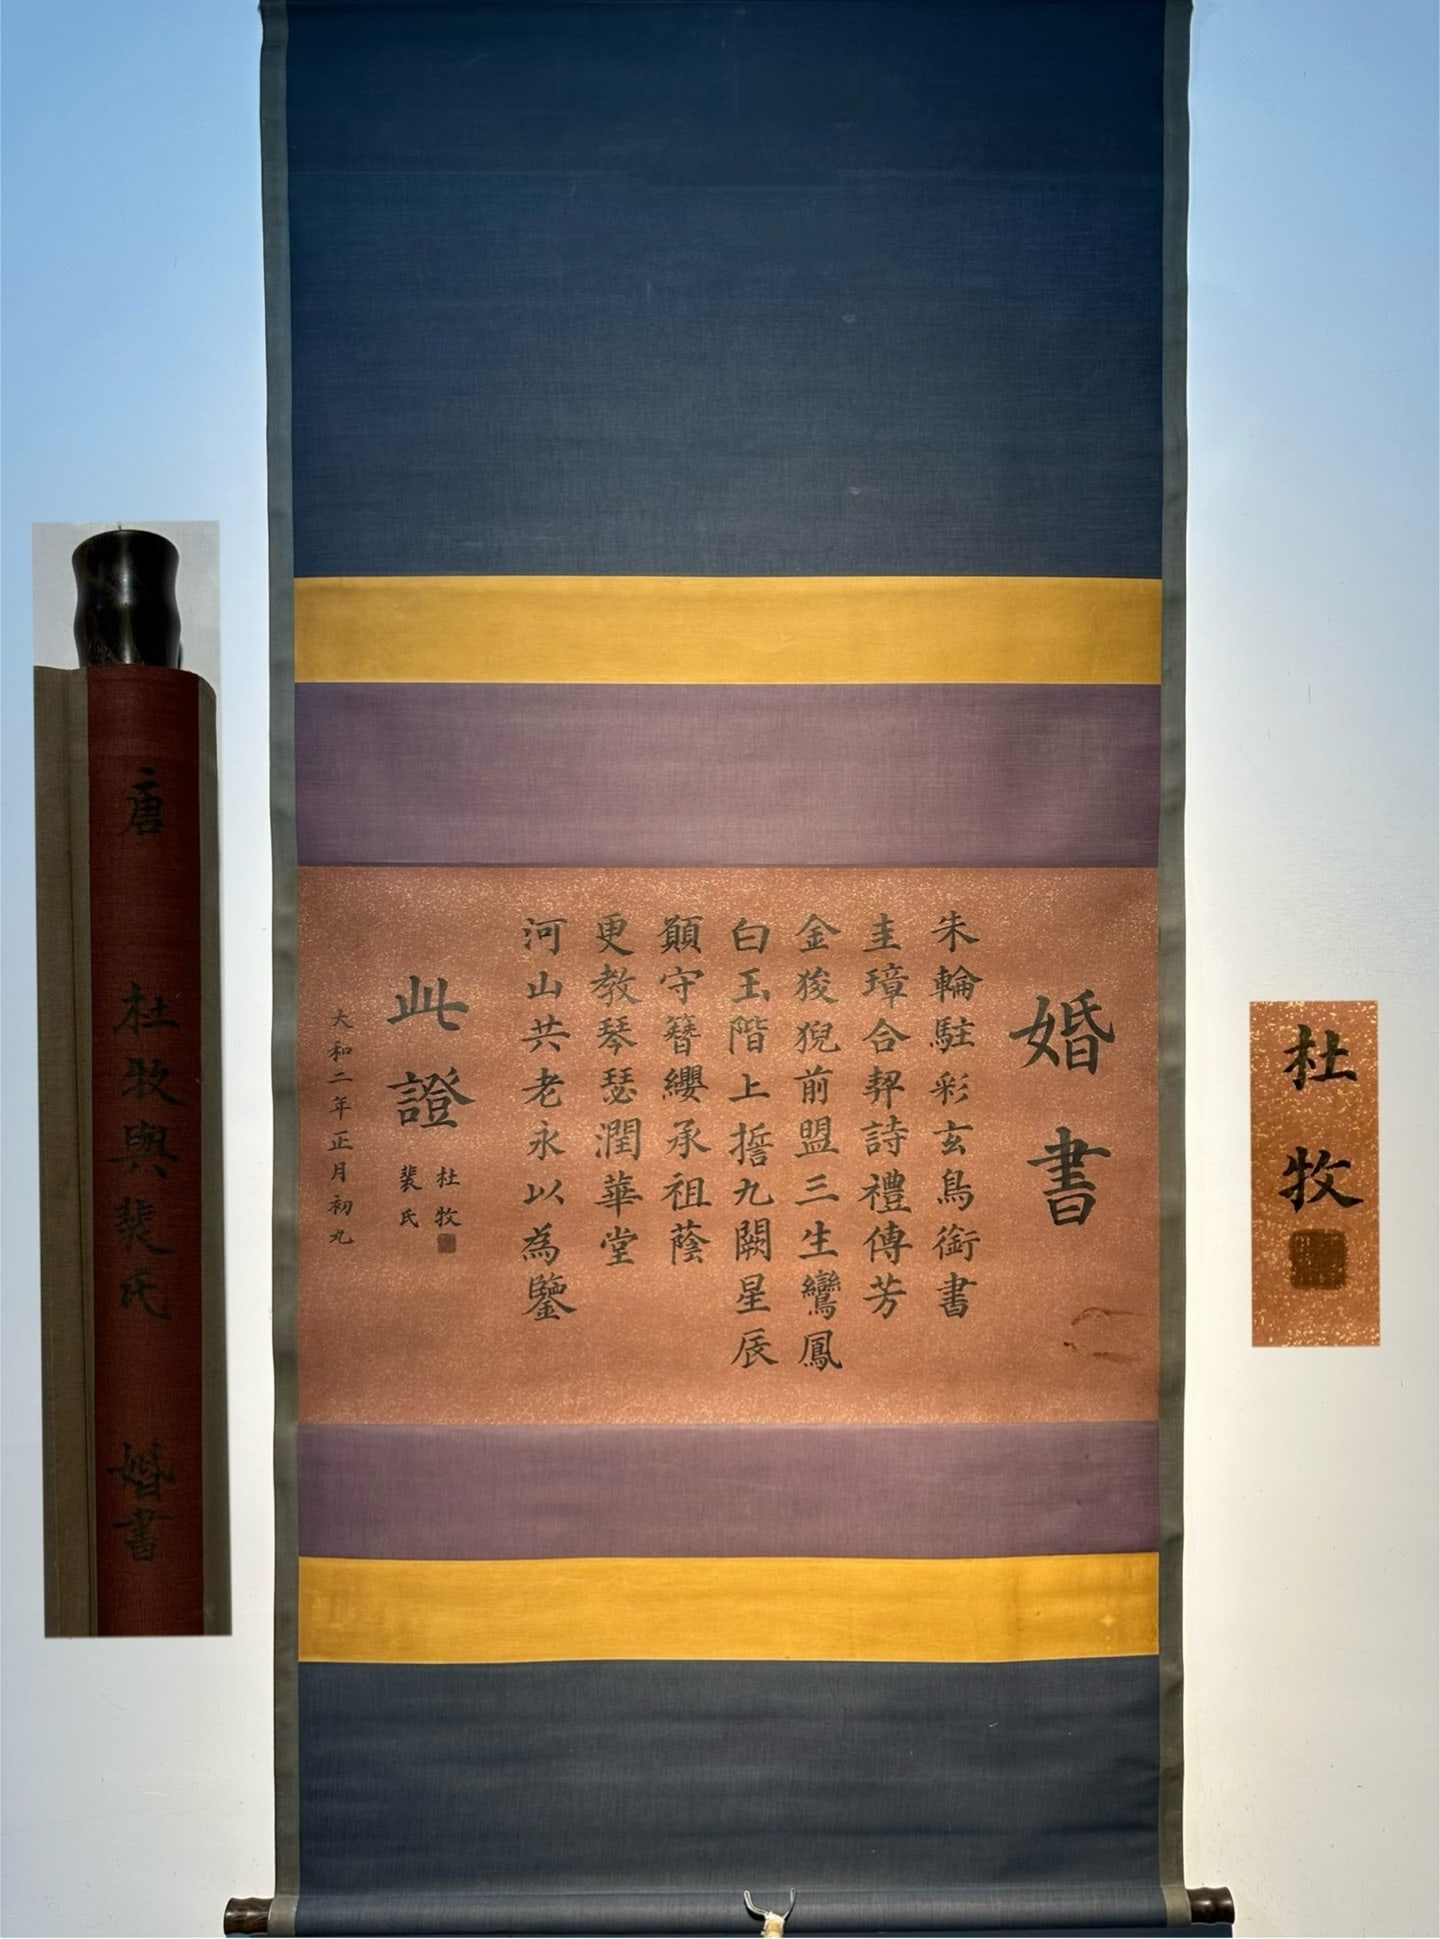 婚書
朱輪駐彩玄鳥銜書
圭璋合契詩禮傳芳
金狻猊前盟三生鸞鳳
白玉階上誓九闕星辰
顚守簪纓承祖蔭
更教琴瑟潤華堂
河山共老永以為鑒
此證
杜牧
裴氏
大和二年正月初九
唐 杜牧與裴氏 婚書
杜牧